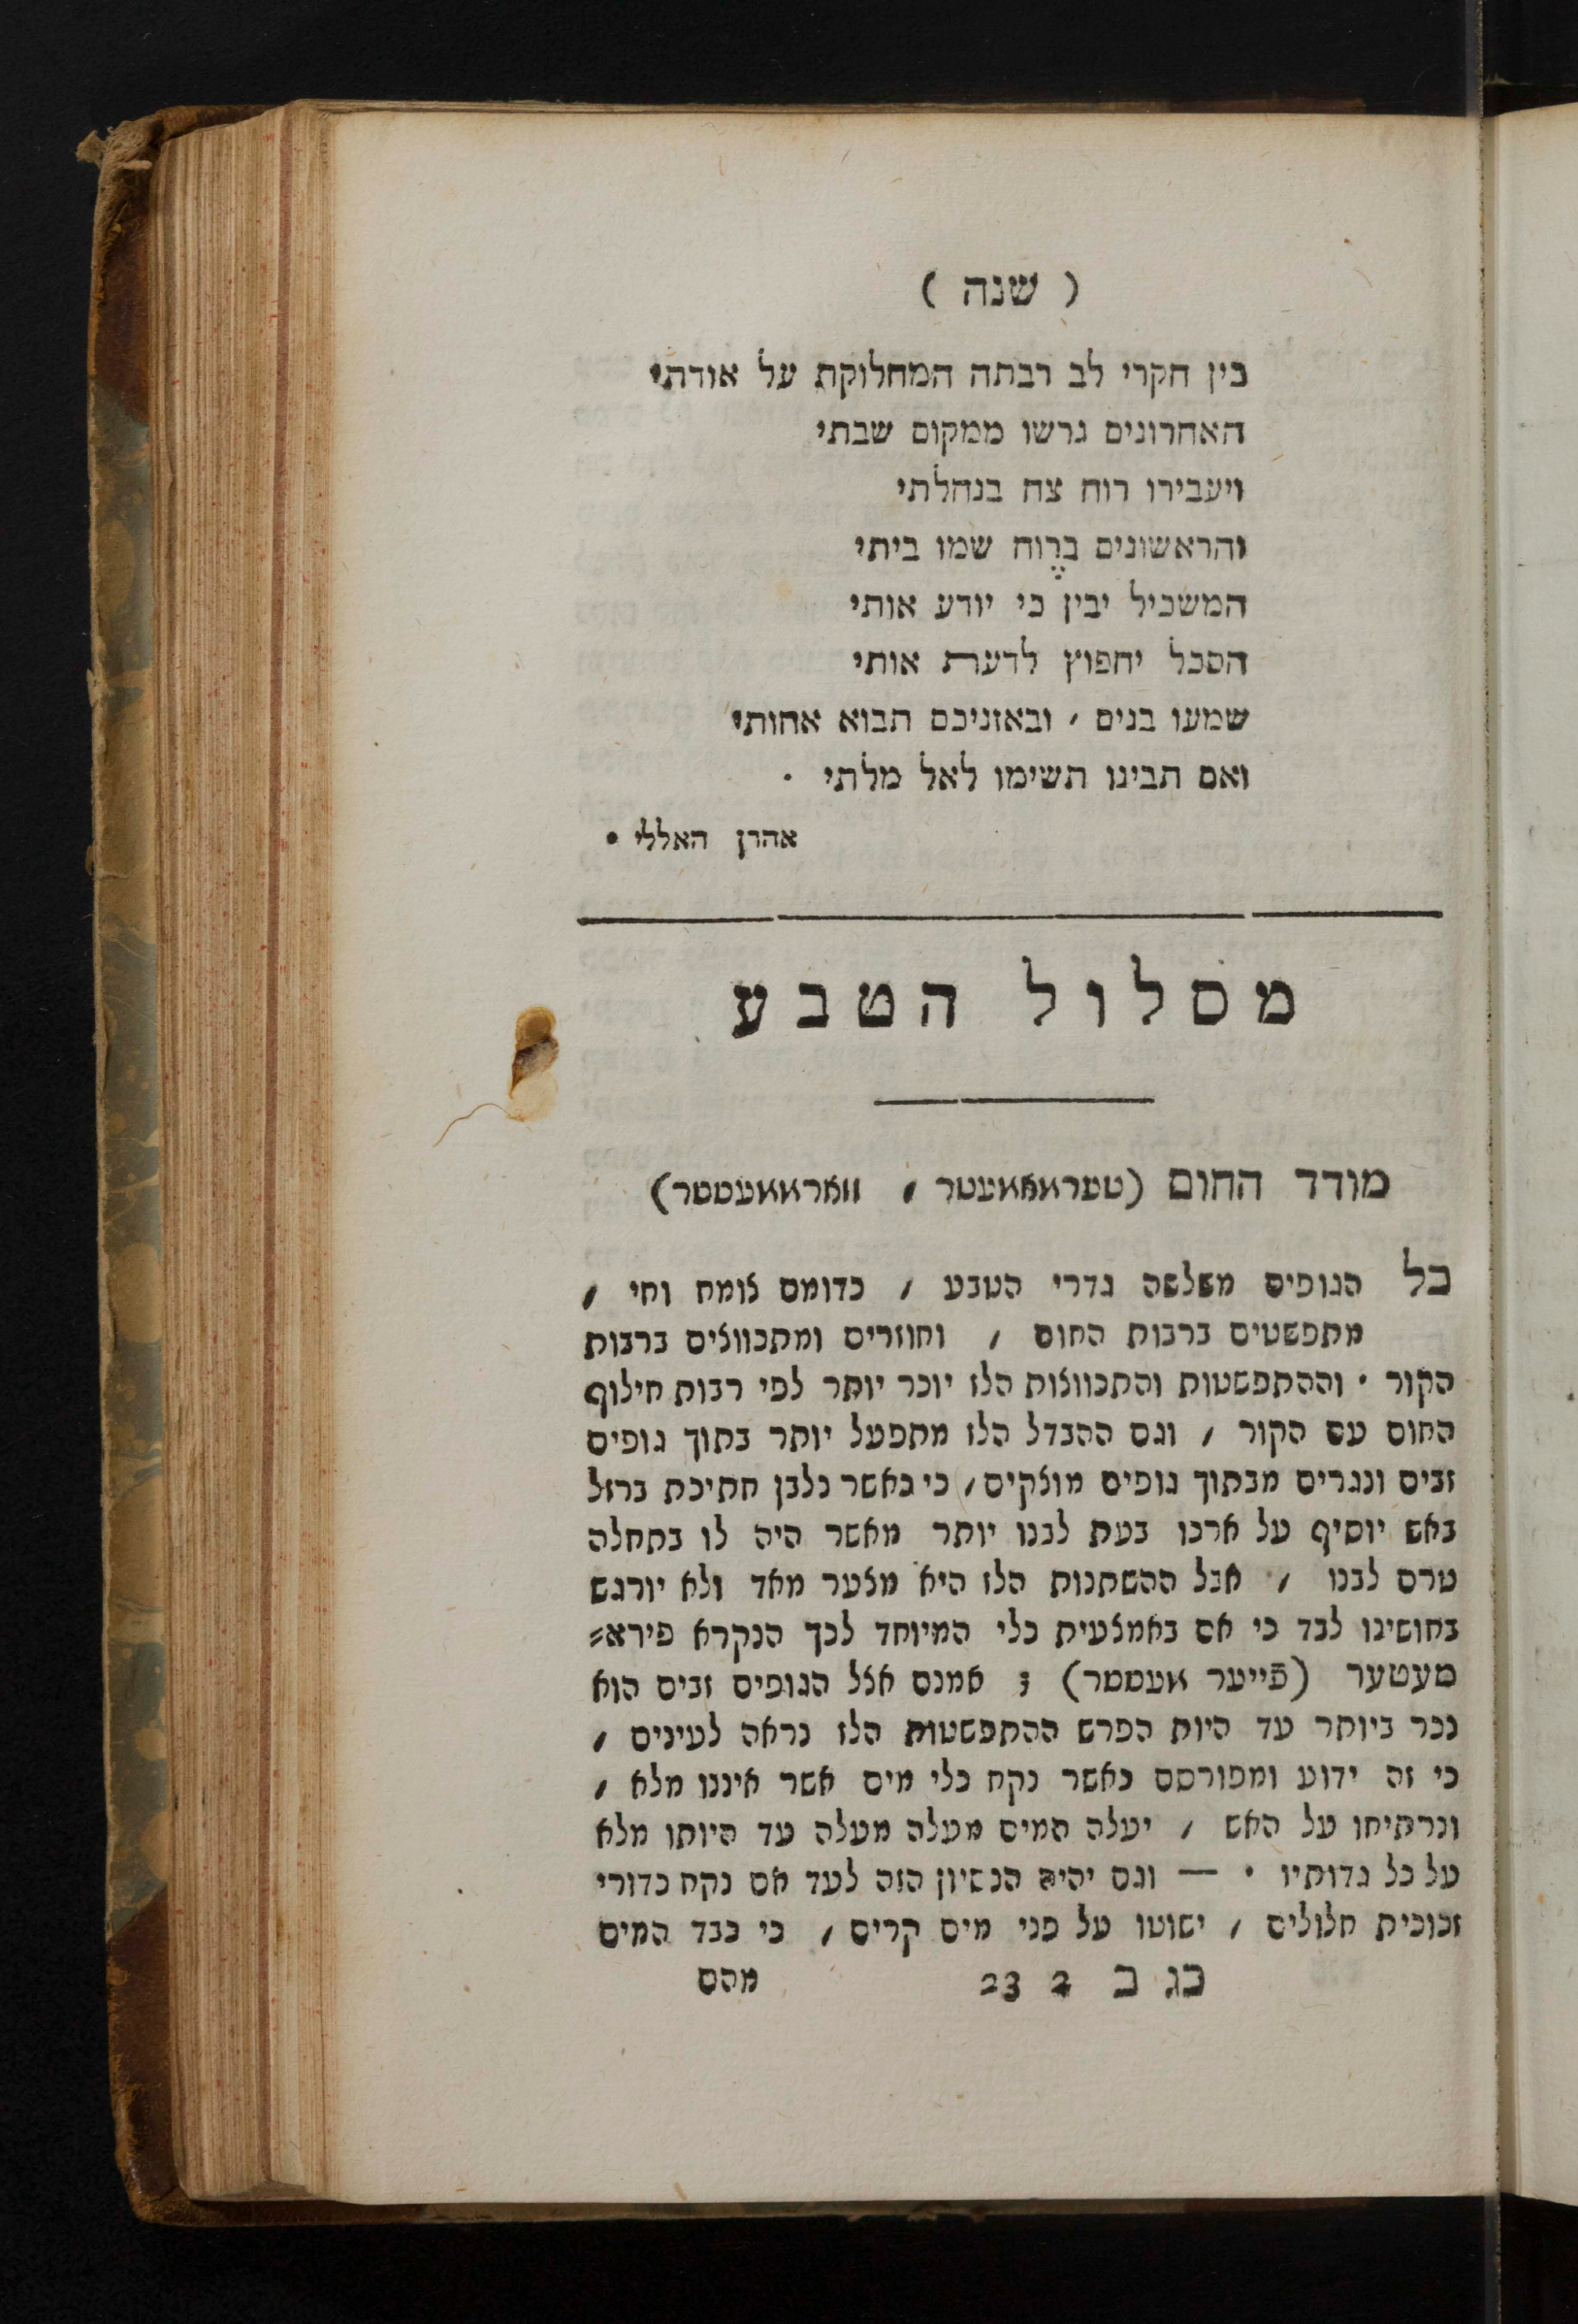 ( שנה )
בין חקרי לב רבתה המחלוקת על אודתי
האחרונים גרשו ממקום שבתי
ויעבירו רוח צח בנחלתי
והראשונים ברֶוח שמו ביתי
המשכיל יבין כי יודע אותי
הסכל יחפוץ לדערת אותי
שמעו בנים , ובאזניכם תבוא אחותי
ואם תבינו תשימו לאל מלתי .
אהרן האללי •
מסלול הטבע
מודד החום (טערמאמעטר , ווארממעססר)
כל הגופים משלשה גדרי הטבע , כדומם צומח וחי ,
מתפשטים ברבות החום , וחוזרים ומתכווצים ברבות
הקור . וההתפשטות והתכווצות הלז יוכר יותר לפי רבות חילוף
החום עם הקור , וגם ההבדל הלז מתפעל יותר בתוך גופים
זבים ונגרים מבתוך גופים מוצקים , כי כאשר נלבן חתיכת ברזל
באש יוסיף על ארכו בעת לבנו יותר מאשר היה לו בתחלה
טרם לבנו , אבל ההשתנות הלז היא מצער מאד ולא יורגש
בחושינו לבד כי אם באמצעית כלי המיוחד לכך הנקרא פירא-
מעטער (פֿייער מעססר) ; אמנם אצל הגופים זבים הוא
נכר ביותר עד היות הפרש ההתפשטות הלז נראה לעינים ,
כי זה ידוע ומפורסם כאשר נקח כלי מים אשר איננו מלא ,
ונרתיחו על האש , יעלה המים מעלה מעלה עד היותו מלא
על כל גדותיו . — וגם יהיה הנסיון הזה לעד אם נקח כדורי
זכוכית חלולים , ישוטו על פני מים קרים , כי כבד המים
כג ב 2 23 מהם